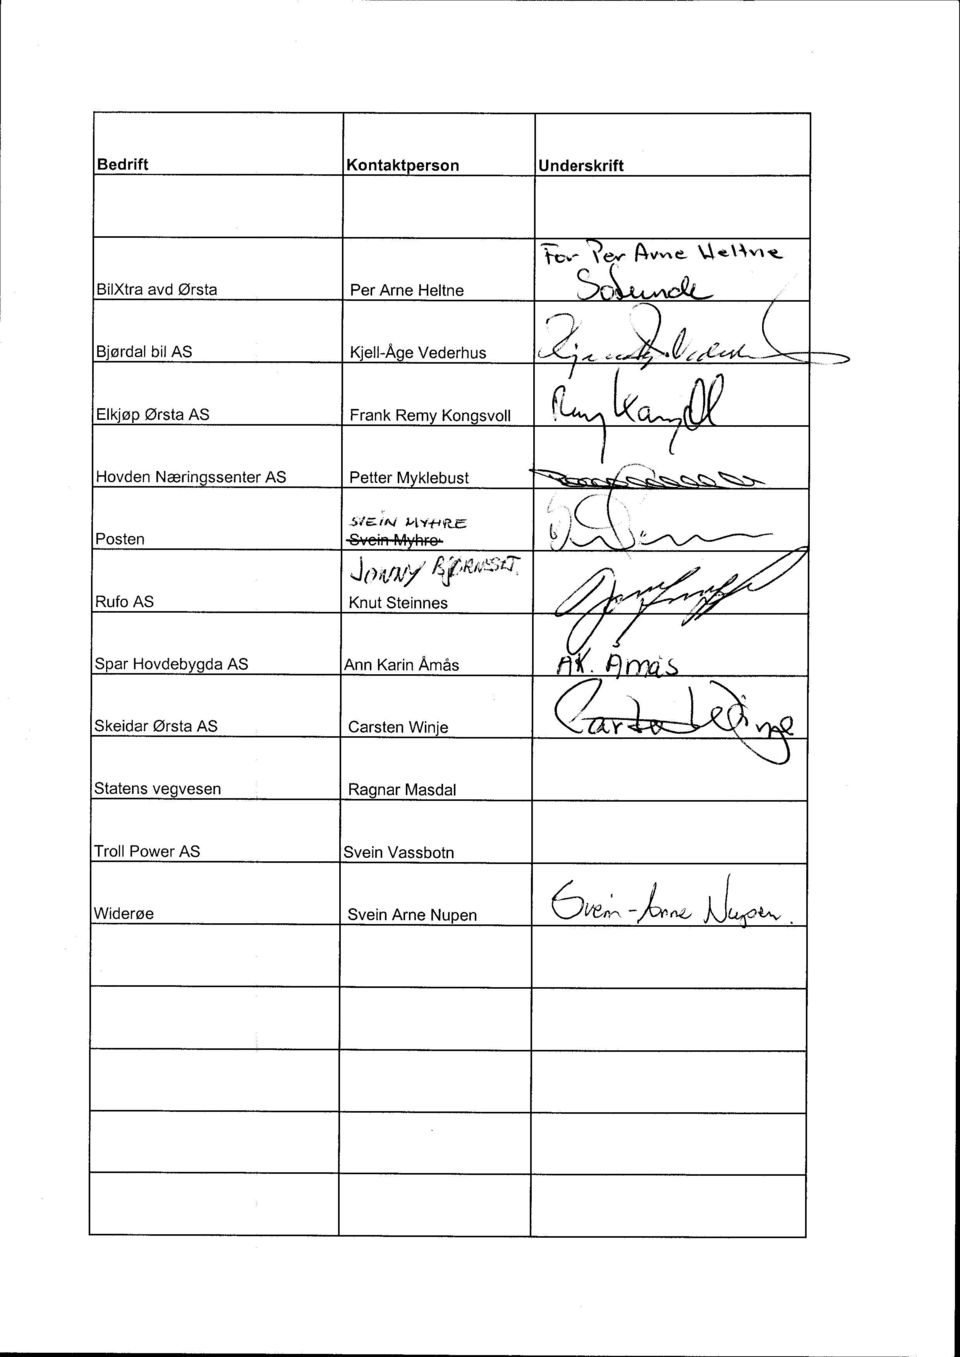 Bedrift Kontaktperson Underskrift
For Per Arne Heltne
BilXtra avd Ørsta Per Arne Heltne
Bjørdal bil AS Kjell-Åge Vederhus
Elkjøp Ørsta AS Frank Remy Kongsvoll
Hovden Næringssenter AS Petter Myklebust
SVEIN MYHRE
Posten Svein Myhre
JONNY
Rufo AS Knut Steinnes
Spar Hovdebygda AS Ann Karin Åmås AK. Åmås
Skeidar Ørsta AS Carsten Winje Carsten Winje
Statens vegvesen Ragnar Masdal
Troll Power AS Svein Vassbotn
Widerøe Svein Arne Nupen Svein-Arne Nupen.